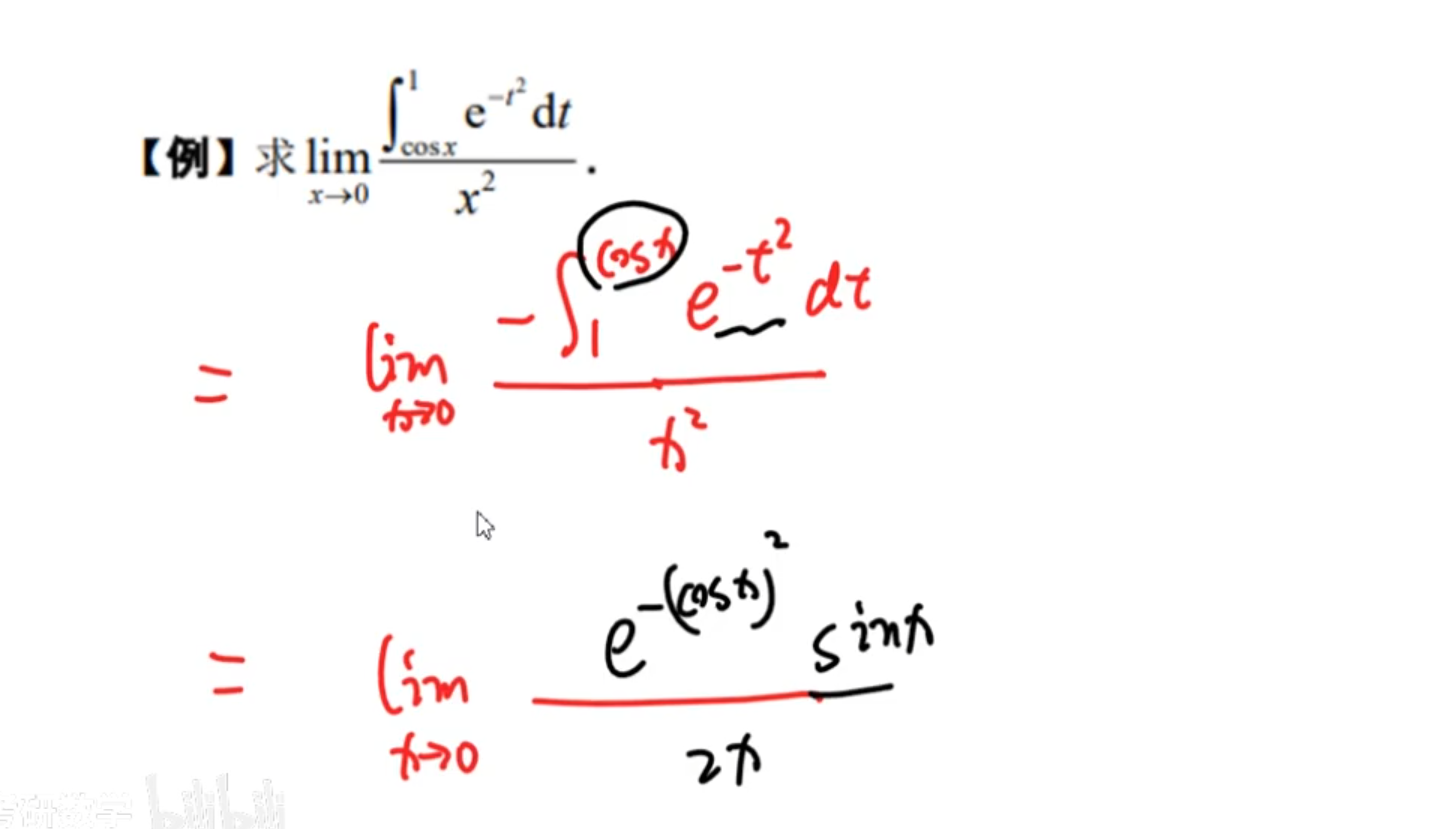 【例】求 lim_{x→0} \frac{∫_{cos x}^{1} e^{-t^2} dt}{x^2} .
= lim_{x→0} \frac{-∫_{1}^{cos x} e^{-t^2} dt}{x^2}
= lim_{x→0} \frac{e^{-(cos x)^2} sin x}{2x}
考研数学 bilibili